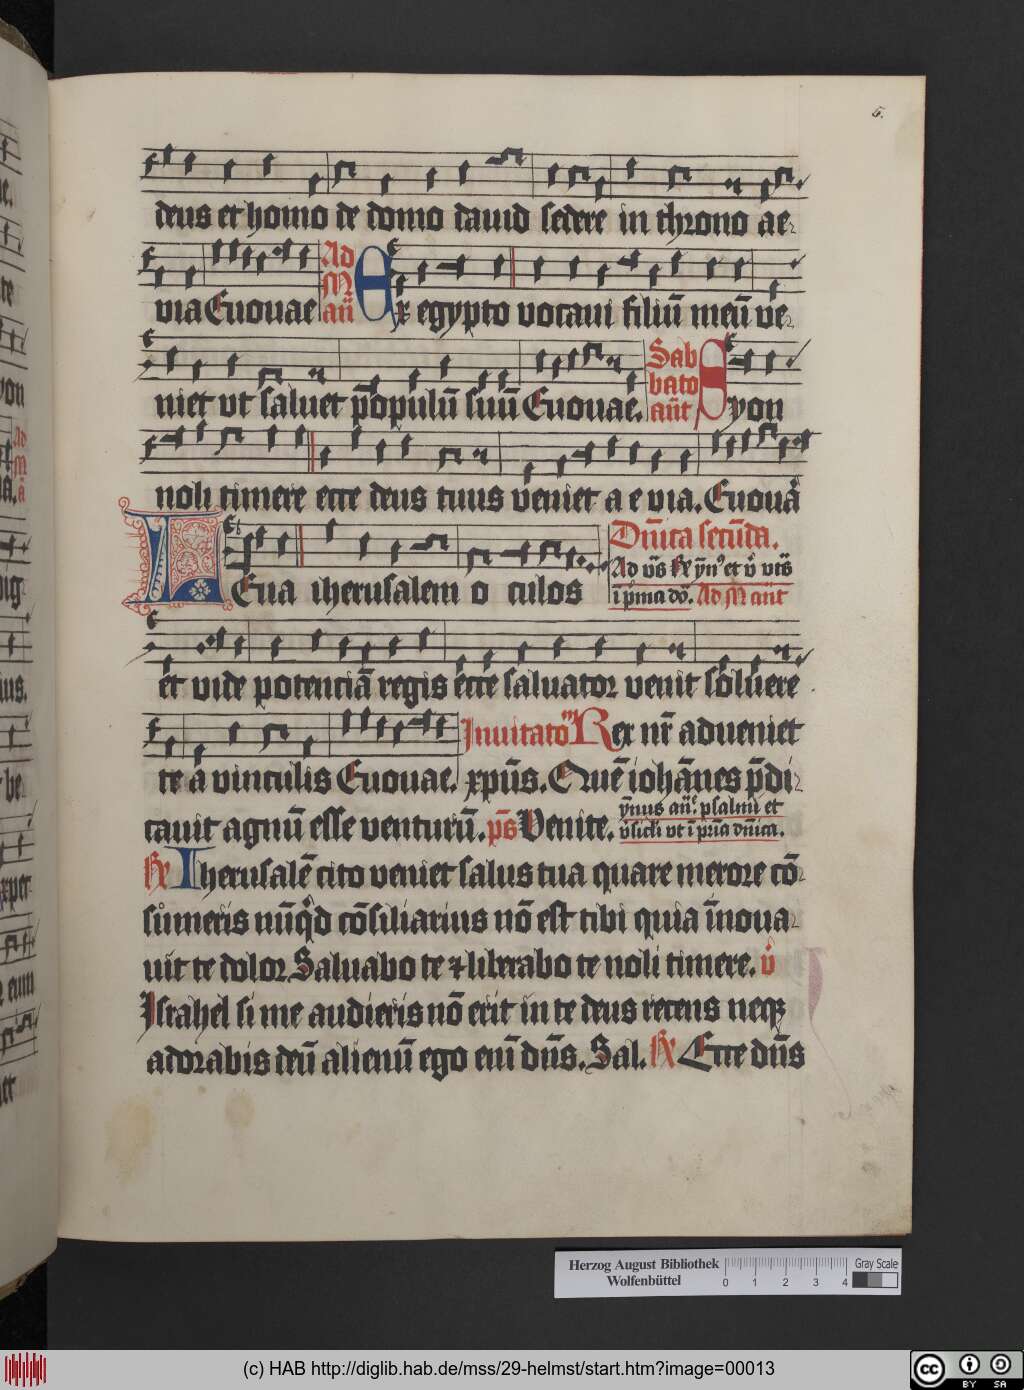 5.
deus et homo de domo dauid sedere in throno ae-
uia Euouae Ad M añ Ex egypto vocaui filiū meū ve-
niet vt saluet p̄opulū suū Euouae. Sabbato añt Syon
noli timere ecce deus tuus veniet a e via. Euoua
Leua iherusalem o culos Dn̄ica secūda.
Ad
i p̄ma do. Ad M añt
et vide potenciā regis ecce saluator venit soluere
te a vinculis Euouae. Inuitatoᷓ Rex nr̄ adueniet
xpūs. Quē iohānes p̄di-
cauit agnū esse venturū. ps̄ Venite. ȳnus añ. psalmi et
vt ī dn̄ica.
Iherusalē cito veniet salus tua quare merore cō-
sumeris nūqd cōsiliarius nō est tibi quia īnoua-
uit te dolor Saluabo te ⁊ liberabo te noli timere. v̇
Israhel si me audieris nō erit in te deus recens neqꝫ
adorabis deū alienū ego enī dn̄s. Sal. Ecce dn̄s
Herzog August Bibliothek
Wolfenbüttel
0 1 2 3 4
Gray Scale
(c) HAB http://diglib.hab.de/mss/29-helmst/start.htm?image=00013
cc BY SA